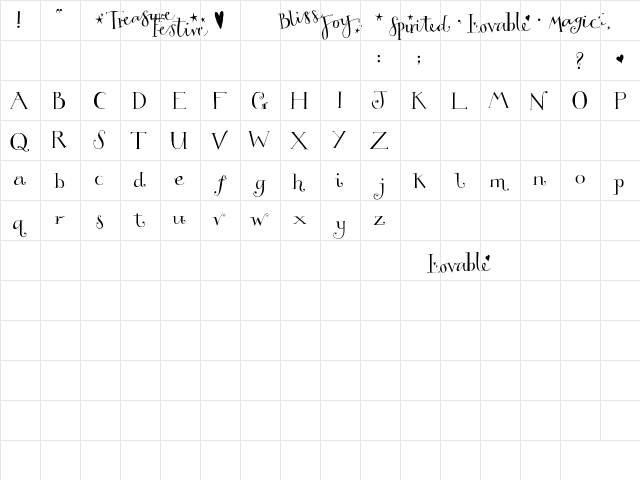 ! " * Treasure Festive ♥ Bliss Joy * Spirited · Lovable · Magic .
: ; ? ♥
A B C D E F G H I J K L M N O P
Q R S T U V W X Y Z
a b c d e f g h i j k l m n o p
q r s t u v w x y z
Lovable